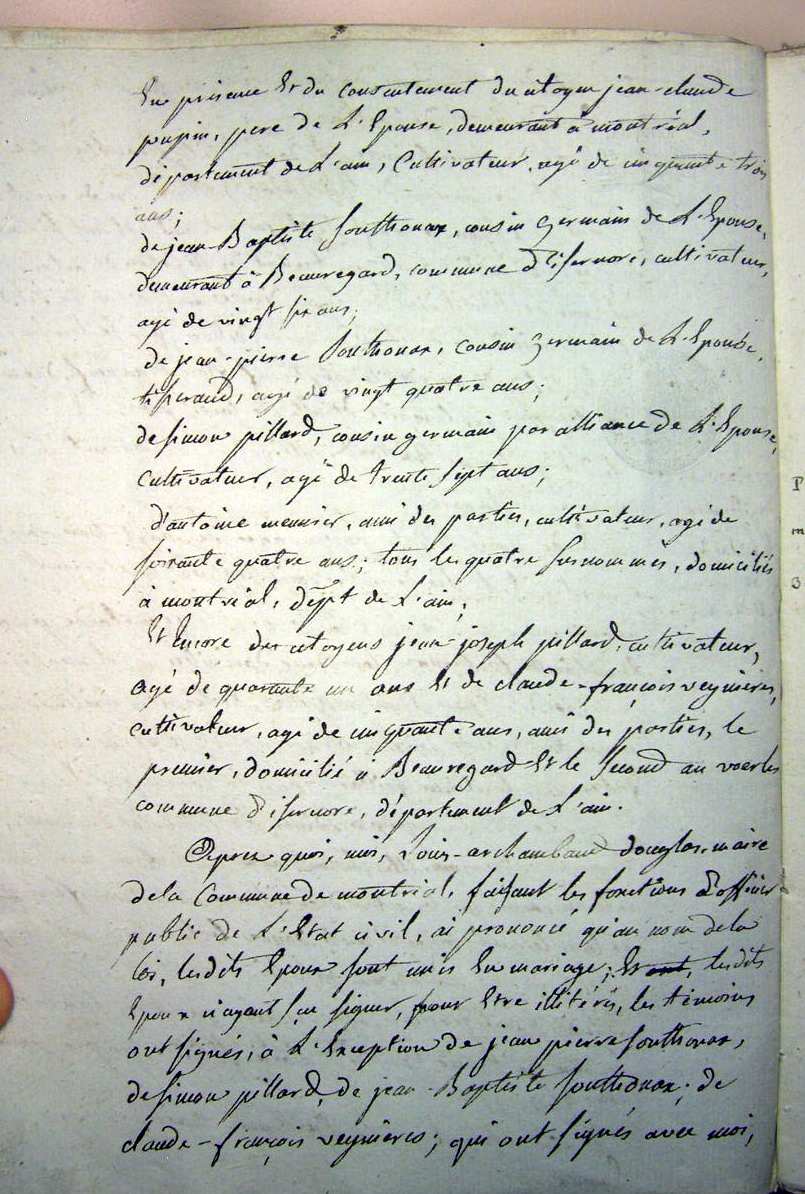 En présence Et du consentement du citoyen jean-claude
pupin, pere de L'Epouse, demeurant à montréal,
département de L'ain, Cultivateur, agé de cinquante trois
ans;
de jean-Baptiste Sonthonax, cousin germain de L'Epouse,
demeurant à Beauregard, commune d'isernore, cultivateur,
agé de vingt six ans;
de jean-pierre Sonthonax, cousin germain de L'Epouse,
tisserand, agé de vingt quatre ans;
de simon pillard, cousin germain par alliance de L'Epouse,
Cultivateur, agé de trente sept ans;
d'antoine meunier, ami des parties, cultivateur, agé de
soixante quatre ans; tous les quatre susnommés, domiciliés
à montréal, dép.t de L'ain;
Et Encore des citoyens jean-joseph pillard, cultivateur,
agé de quarante un ans Et de claude-françois veynières,
cultivateur, agé de cinquante ans, amis des parties, le
premier, domicilié à Beauregard Et le second au voerles
commune d'isernore, département de L'ain.
Après quoi, moi, Louis-archambaud douglas, maire
de la Commune de montréal, faisant les fonctions d'officier
public de L'Etat civil, ai prononcé qu'au nom de la
loi, les dits Epoux sont unis En mariage; Et ont, les dits
Epoux n'ayant sçu signer, pour Etre illitérés, les témoins
ont signés, à L'Exception de jean pierre Sonthonax,
de simon pillard, de jean-Baptiste Sonthonax, de
claude-françois veynières; qui ont signés avec moi,